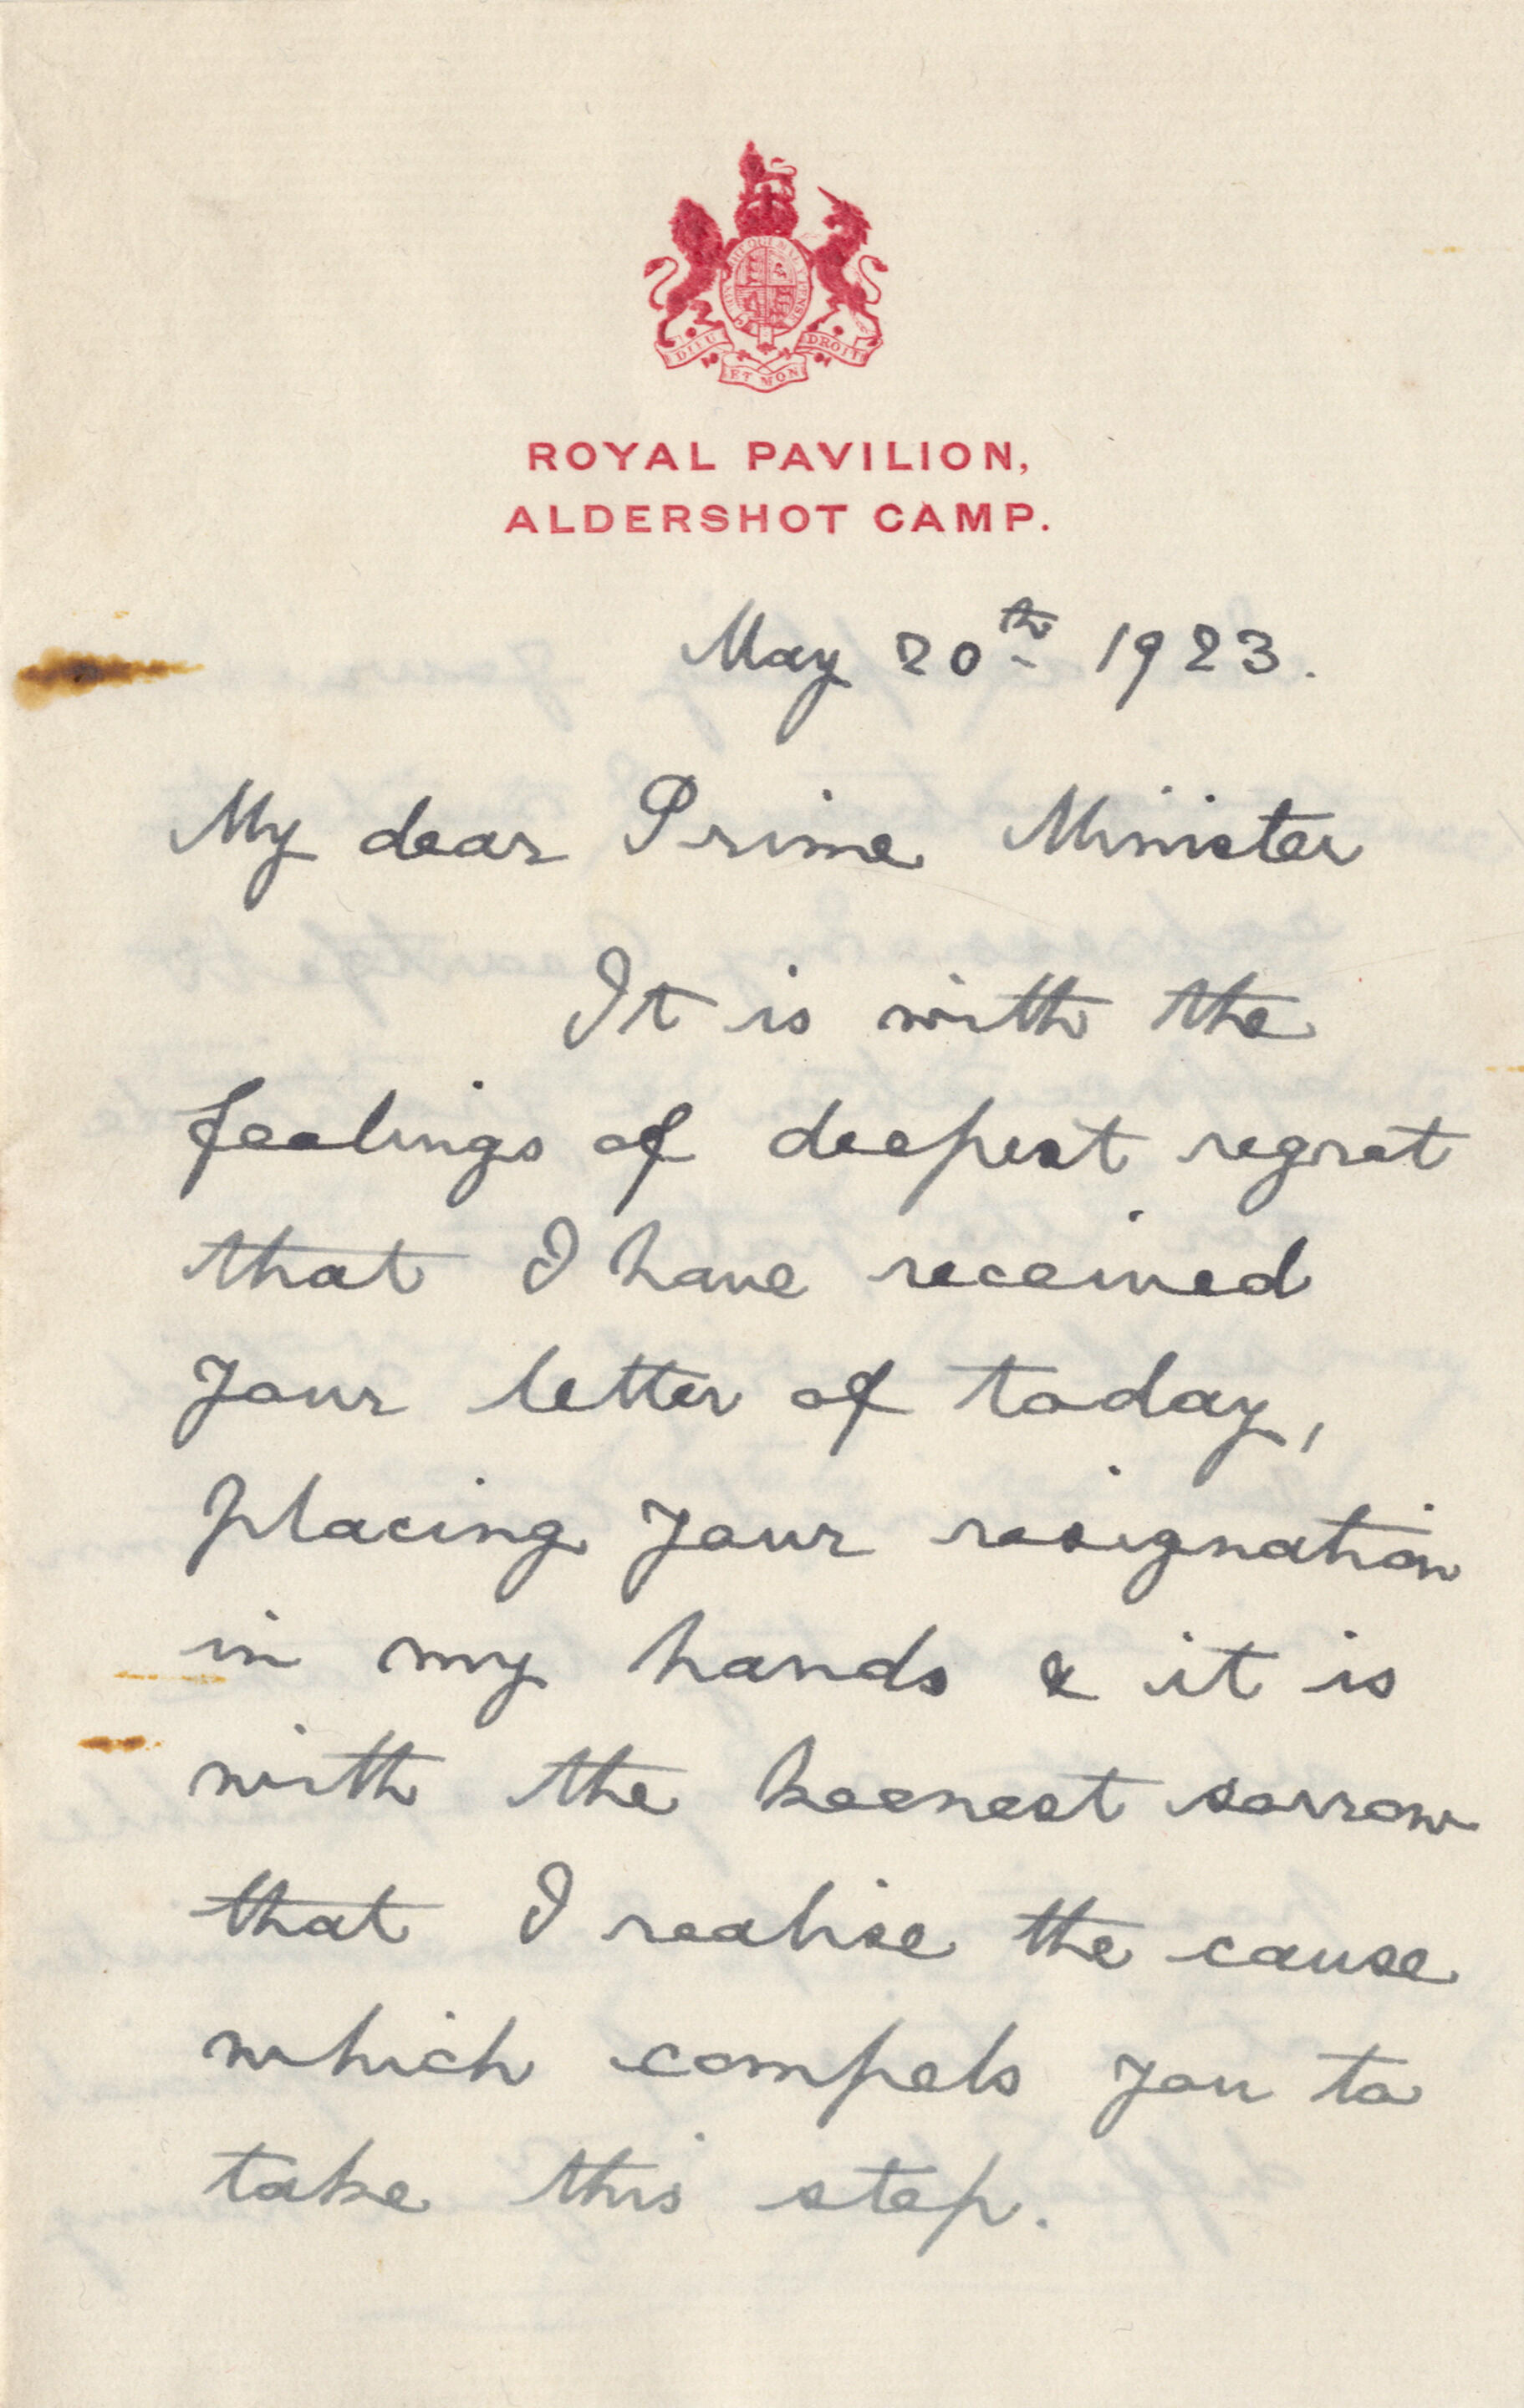 DIEU ET MON DROIT
ROYAL PAVILION,
ALDERSHOT CAMP.
May 20th 1923.
My dear Prime Minister
It is with the
feelings of deepest regret
that I have received
your letter of today,
placing your resignation
in my hands & it is
with the keenest sorrow
that I realise the cause
which compels you to
take this step.